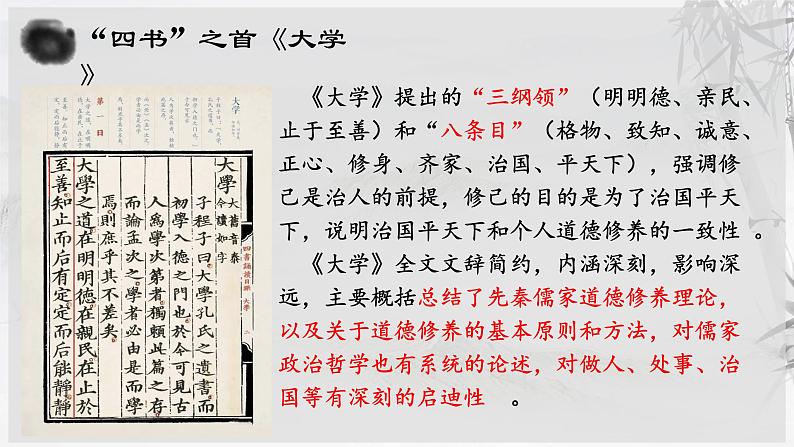 “四书”之首《大学
》
《大学》提出的“三纲领”（明明德、亲民、
止于至善）和“八条目”（格物、致知、诚意、
正心、修身、齐家、治国、平天下），强调修
己是治人的前提，修己的目的是为了治国平天
下，说明治国平天下和个人道德修养的一致性 。
《大学》全文文辞简约，内涵深刻，影响深
远，主要概括总结了先秦儒家道德修养理论，
以及关于道德修养的基本原则和方法，对儒家
政治哲学也有系统的论述，对做人、处事、治
国等有深刻的启迪性 。
大学
第一日
大學
大舊音泰
今讀如字
子程子曰大學孔氏之遺書而
初學入德之門也於今可見古
人為學次第者獨賴此篇之存
而論孟次之學者必由是而學
焉則庶乎其不差矣
大學之道在明明德在親民在止於
至善知止而后有定定而后能靜靜
四書誦讀日課 大學 二